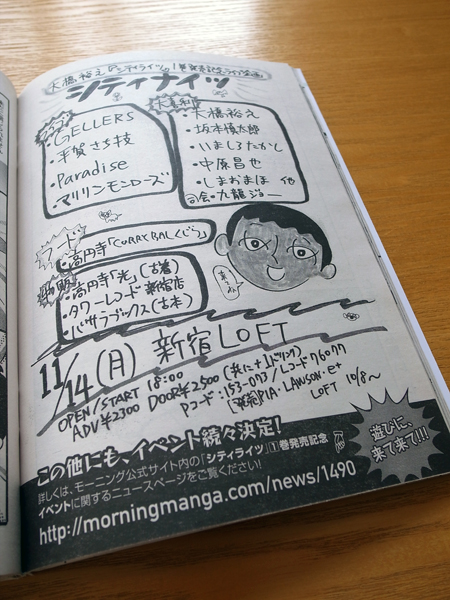 大橋裕之『シティライツ』1巻発売記念ライヴ企画!
シティナイツ
ライブ
・GELLERS
・平賀さち枝
・Paradise
・マリリンモンローズ
大喜利
・大橋裕之
・坂本慎太郎
・いましろたかし
・中原昌也
・しまおまほ 他
司会・九龍ジョー
フード
・高円寺「CURRY BALくじら」
・高円寺「光」(古着)
・タワーレコード 新宿店
・バサラブックス(古本)
来てね
11/14(月) 新宿LOFT
OPEN/START 18:00
ADV¥2300 DOOR¥2500 (共に+1ドリンク)
Pコード:153-073/Lコード76077
[発売]PIA・LAWSON・e+
LOFT 10/8~
この他にも、イベント続々決定!
詳しくは、モーニング公式サイト内の「シティライツ」①巻発売記念
イベントに関するニュースページをご覧ください!
http://morningmanga.com/news/1490
遊びに、
来て来て!!!